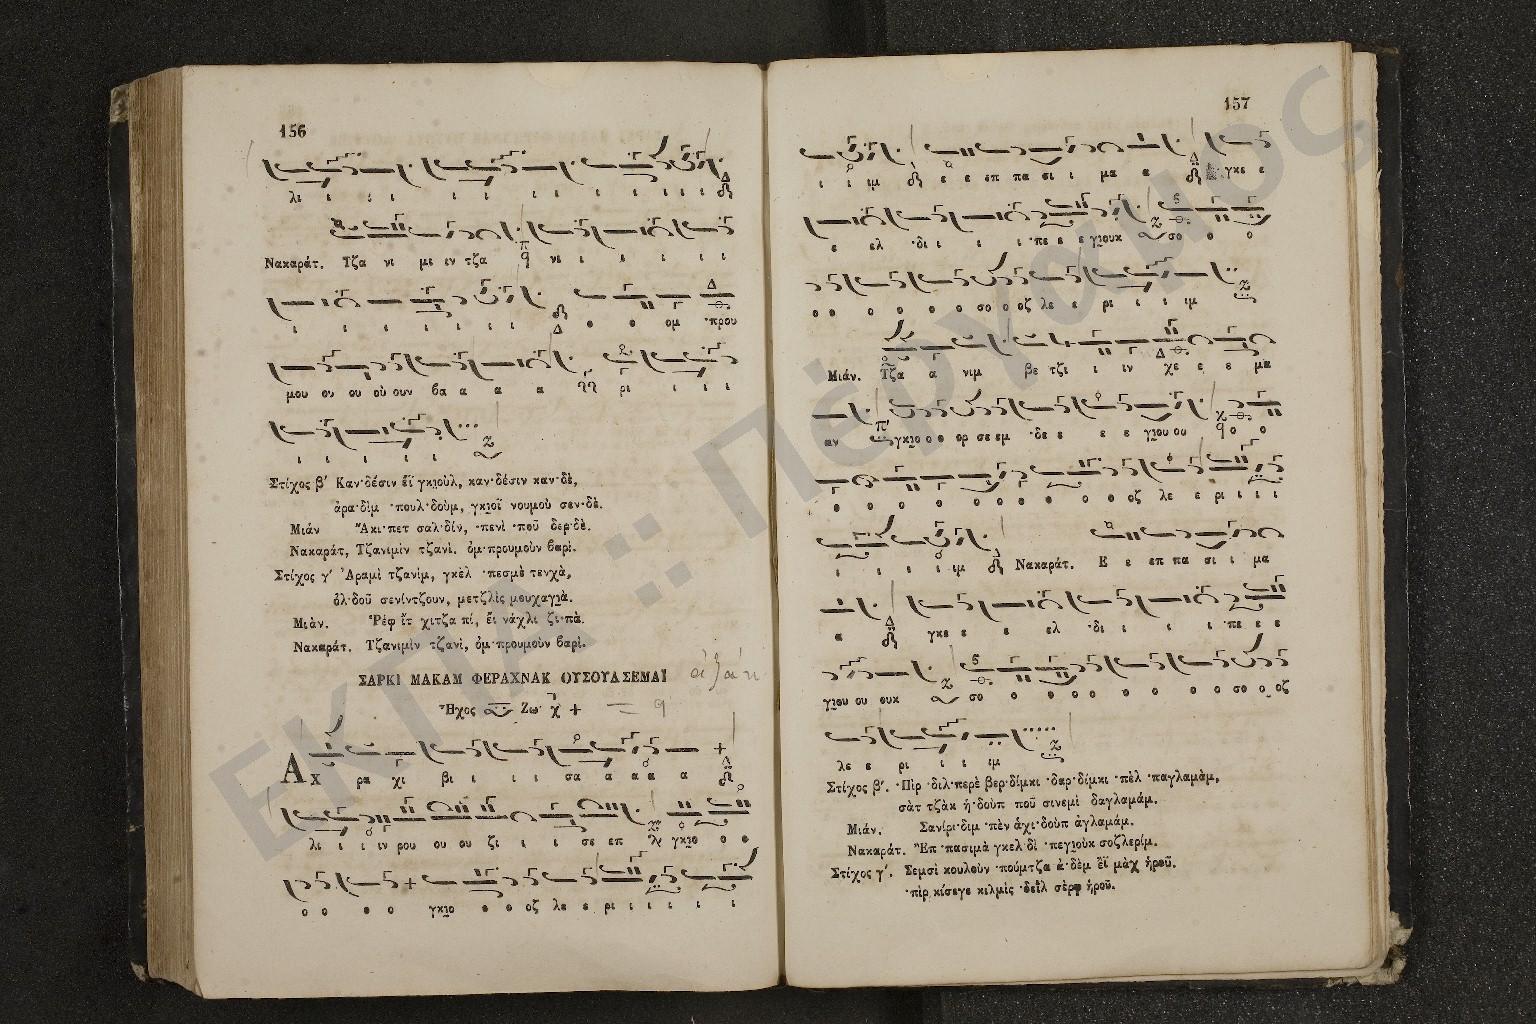 156
λι ι ι ι ι ι ι ι ι ι ι ι
Νακαράτ. Τζα νι μι ιν τζα νι ι ι ι ι ι
ι ι ι ι ι ι ι ο ο ομ ·πρου
μου ου ου ού ουν βα α α α ρι ι ι ι
ι ι ι ι ι
Στίχος β΄ Καν·δέσιν ἒϊ γκιοὺλ, καν·δέσιν καν·δὲ,
ἀρα·δὶμ ·πουλ·δοὺμ, γκιοῒ νουμοὺ σεν·δὲ.
Μιάν Ἄκι·πετ σαλ·δίν, ·πενὶ ·ποῦ δερ·δὲ.
Νακαράτ, Τζανιμὶν τζανὶ. ὀμ·προυμοὺν βαρὶ.
Στίχος γ΄ Ἀραμὶ τζανὶμ, γκὲλ ·πεσμὲ τενχὰ,
ὀλ·δοῦ σενίντζουν, μετζλὶς μουχαγιὰ.
Μιὰν. Ῥέφ ἲτ χιτζα πί, ἒι νάχλι ζι·πὰ.
Νακαράτ. Τζανιμὶν τζανὶ, ὀμ·προυμοὺν βαρὶ.
ΣΑΡΚΙ ΜΑΚΑΜ ΦΕΡΑΧΝΑΚ ΟΥΣΟΥΛ ΣΕΜΑΪ
Ἦχος Ζω
Αχ ρα χι βι ι ι ι σα α α α α
λι ι ι ιν ρου ου ου ζι ι ι σε επ γκιο ο ο
ο ο ο ο γκιο ο ο οζ λε ε ρι ι ι ι ι ι
157
ι ι ιμ ε ε επ πα σι ι μα α γκε ε
ε ελ ·δι ι ι ι ·πε ε ε γιουκ σο ο ο
ο ο ο ο ο ο σο ο οζ λε ε ρι ι ι ιμ
Μιάν. Τζα α νιμ βε τζι ι ιν χε ε ε μα
αν γκιο ο ο ορ σε εμ ·δε ε ε ε γιου ου ο ο
ο ο ο ο ο ο ο ο ο οζ λε ε ρι ι ι ι
ι ι ι ι ιμ Νακαράτ. Ε ε επ πα σι ι μα
α γκε ε ε ελ ·δι ι ι ι ·πε ε ε
γιου ου ουκ σο ο ο ο ο ο ο ο σο ο οζ
λε ε ρι ι ιμ
Στίχος β΄. ·Πὶρ ·διλ·περὲ βερ·δίμκι ·δαρ·δίμκι ·πὲλ ·παγλαμὰμ,
σὰτ τζὰκ ἠ·δοὺπ ποῦ σινεμὶ δαγλαμάμ.
Μιάν. Σανίρι·διμ ·πὲν ἀχι·δοὺπ ἀγλαμάμ.
Νακαράτ. Ἒπ ·πασιμὰ γκελ·δὶ ·πεγιοὺκ σοζλερίμ.
Στίχος γ΄. Σεμσὶ κουλοὺν ·πούμτζα ἀ·δὲμ ἒϊ μὰχ ἡροῦ.
·πὶρ κίσεγε κιλμὶς ·δεῒλ σὲρφ ἡροῦ.